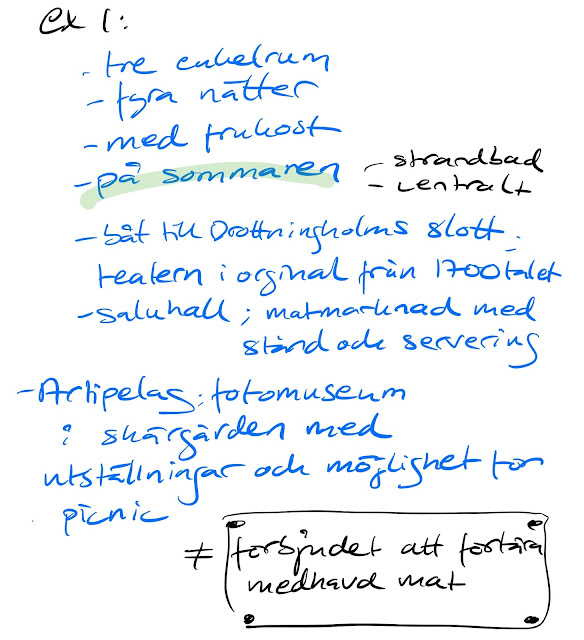 ex 1:
. tre enkelrum
- fyra nätter
- med frukost
- på sommaren
- strandbad
- centralt
- båt till Drottningholms slott.
teatern i orginal från 1700talet
- saluhall; matmarknad med
stånd och servering
- Artipelag: fotomuseum
i skärgården med
utställningar och möjlighet för
picnic
≠ förbjudet att förtära
medhavd mat